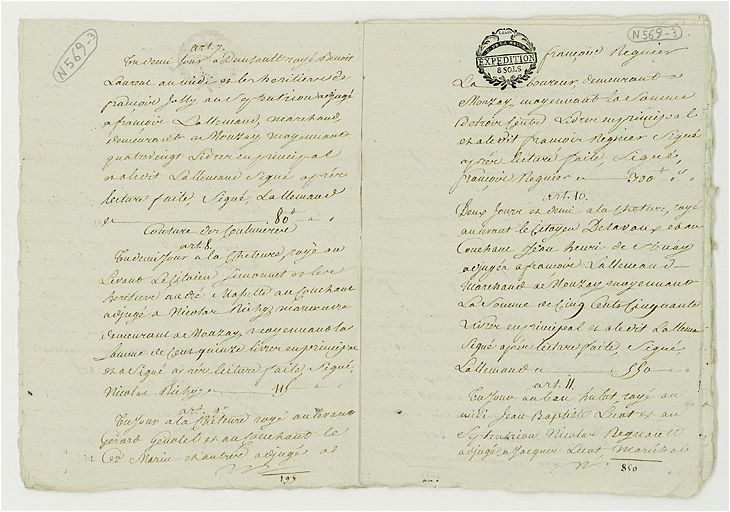 N 569-3
art. 7.
Un demi jour a Renfault royé Benoit
Laurent au midi et les heritiers de
francois Jolly au Septentrion adjugé
a francois Lallemand, marchand
demeurant a Mouzay moyennant
quatrevingt Livres en principal
et a ledit Lallemand Signé après
lecture faite, Signé, Lallemand
80
Couture des
art. 8.
Un demi Jour a la Cheteure, royé au
Levant Le Citoien Simonnet et les
heritiers andré Mafette au Couchant
adjugé a Nicolas Richy manoeuvre
demeurant a Mouzay, moyennant la
Somme de Cent quinze livres en principal
et a Signé après lecture faite Signé,
Nicolas Richy 115
art. 9.
Un Jour a la Cheteure royé au levant
Gérard et au Couchant le
Cen Marie et autres adjugé a
195
N 569-3
EXPEDITION
8 SOLS
françois Regnier
Laboureur demeurant a
Mouzay, moyennant la Somme
de trois Cents Livres en principal
et a ledit françois Regnier Signé
après lecture faite Signé,
françois Regnier 300
art. 10.
Deux Jours et demi a la Cheteure, royé
au levant le Citoyen Delavaux et au
Couchant Jean henri de
adjugés a francois Lallemand
Marchand a Mouzay moyennant
La Somme de Cinq Cents Cinquante
Livres en principal et a ledit Lallemand
Signé après lecture faite Signé,
Lallemand 550
art. 11.
Un Jour au ban royé au
midi Jean Baptiste Licot et au
Septentrion Nicolas Regnault
adjugé a Jacques Licot Maréchal
850